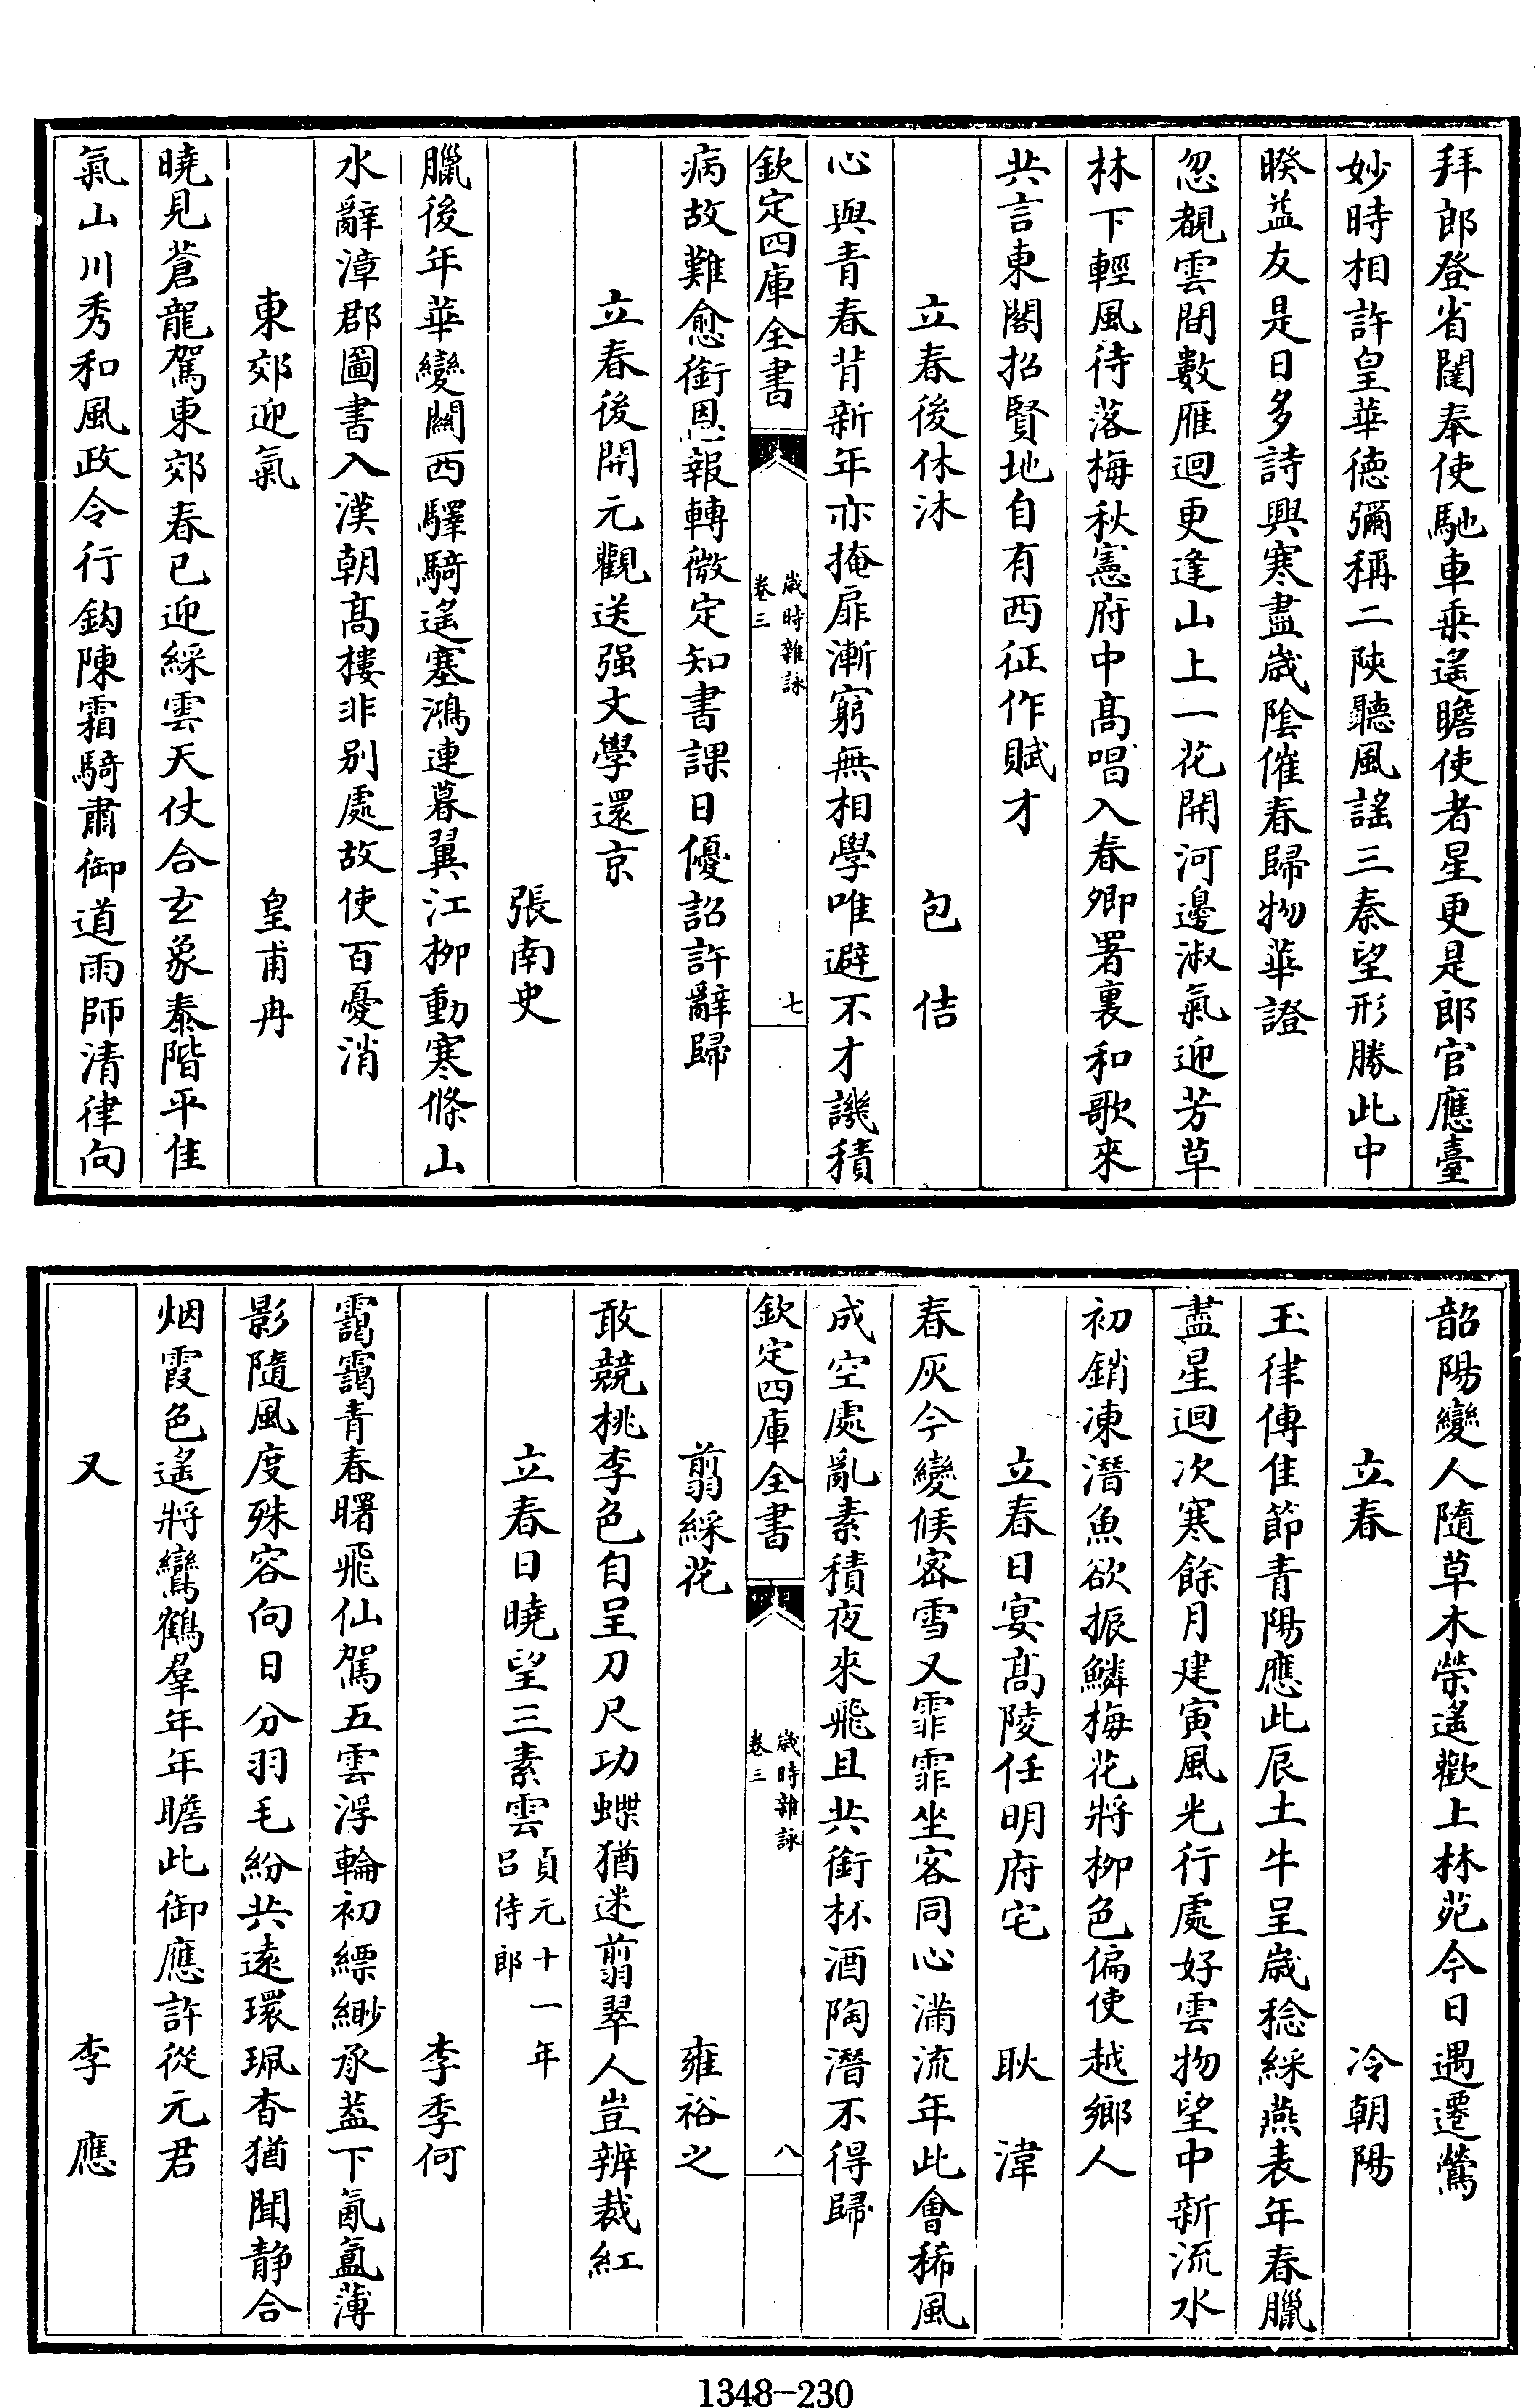 拜郎登省闥奉使馳車乗遙瞻使者星更是郎官應臺
妙時相許皇華德彌稱二陜聽風謠三秦望形勝此中
暌益友是日多詩興寒盡歳隂催春歸物華證
忽覩雲間數雁迴更逢山上一花開河邊淑氣迎芳草
林下輕風待落梅秋憲府中髙唱入春卿署裏和歌來
共言東閣招賢地自有西征作賦才
立春後休沐 包佶
心與青春背新年亦掩扉漸窮無相學唯避不才譏積
欽定四庫全書 歳時雜詠 卷三 七
病故難愈銜恩報轉微定知書課日優詔許辭歸
立春後開元觀送强文學還京
張南史
臘後年華變關西驛騎遙塞鴻連暮翼江栁動寒條山
水辭漳郡圖書入漢朝髙樓非别處故使百憂消
東郊迎氣 皇甫冉
曉見蒼龍駕東郊春已迎綵雲天仗合玄象泰階平佳
氣山川秀和風政令行鈎陳霜騎肅御道雨師清律向
韶陽變人隨草木榮遙歡上林苑今日遇遷鶯
立春 冷朝陽
玉律傳佳節青陽應此辰土牛呈歳稔綵燕表年春臘
盡星迴次寒餘月建寅風光行處好雲物望中新流水
初銷凍潛魚欲振鱗梅花將栁色偏使越鄉人
立春日宴髙陵任明府宅 耿湋
春灰今變候宻雪又霏霏坐客同心滿流年此會稀風
成空處亂素積夜來飛且共銜杯酒陶潛不得歸
欽定四庫全書 歳時雜詠 卷三 八
翦綵花 雍裕之
敢競桃李色自呈刀尺功蝶猶迷翦翠人豈辨裁紅
立春日曉望三素雲 貞元十一年 吕侍郎
李季何
靄靄青春曙飛仙駕五雲浮輪初縹緲承葢下氤氲薄
影隨風度殊容向日分羽毛紛共遠環珮杳猶聞静合
烟霞色遙將鸞鶴羣年年瞻此御應許從元君
又 李應
1348-230